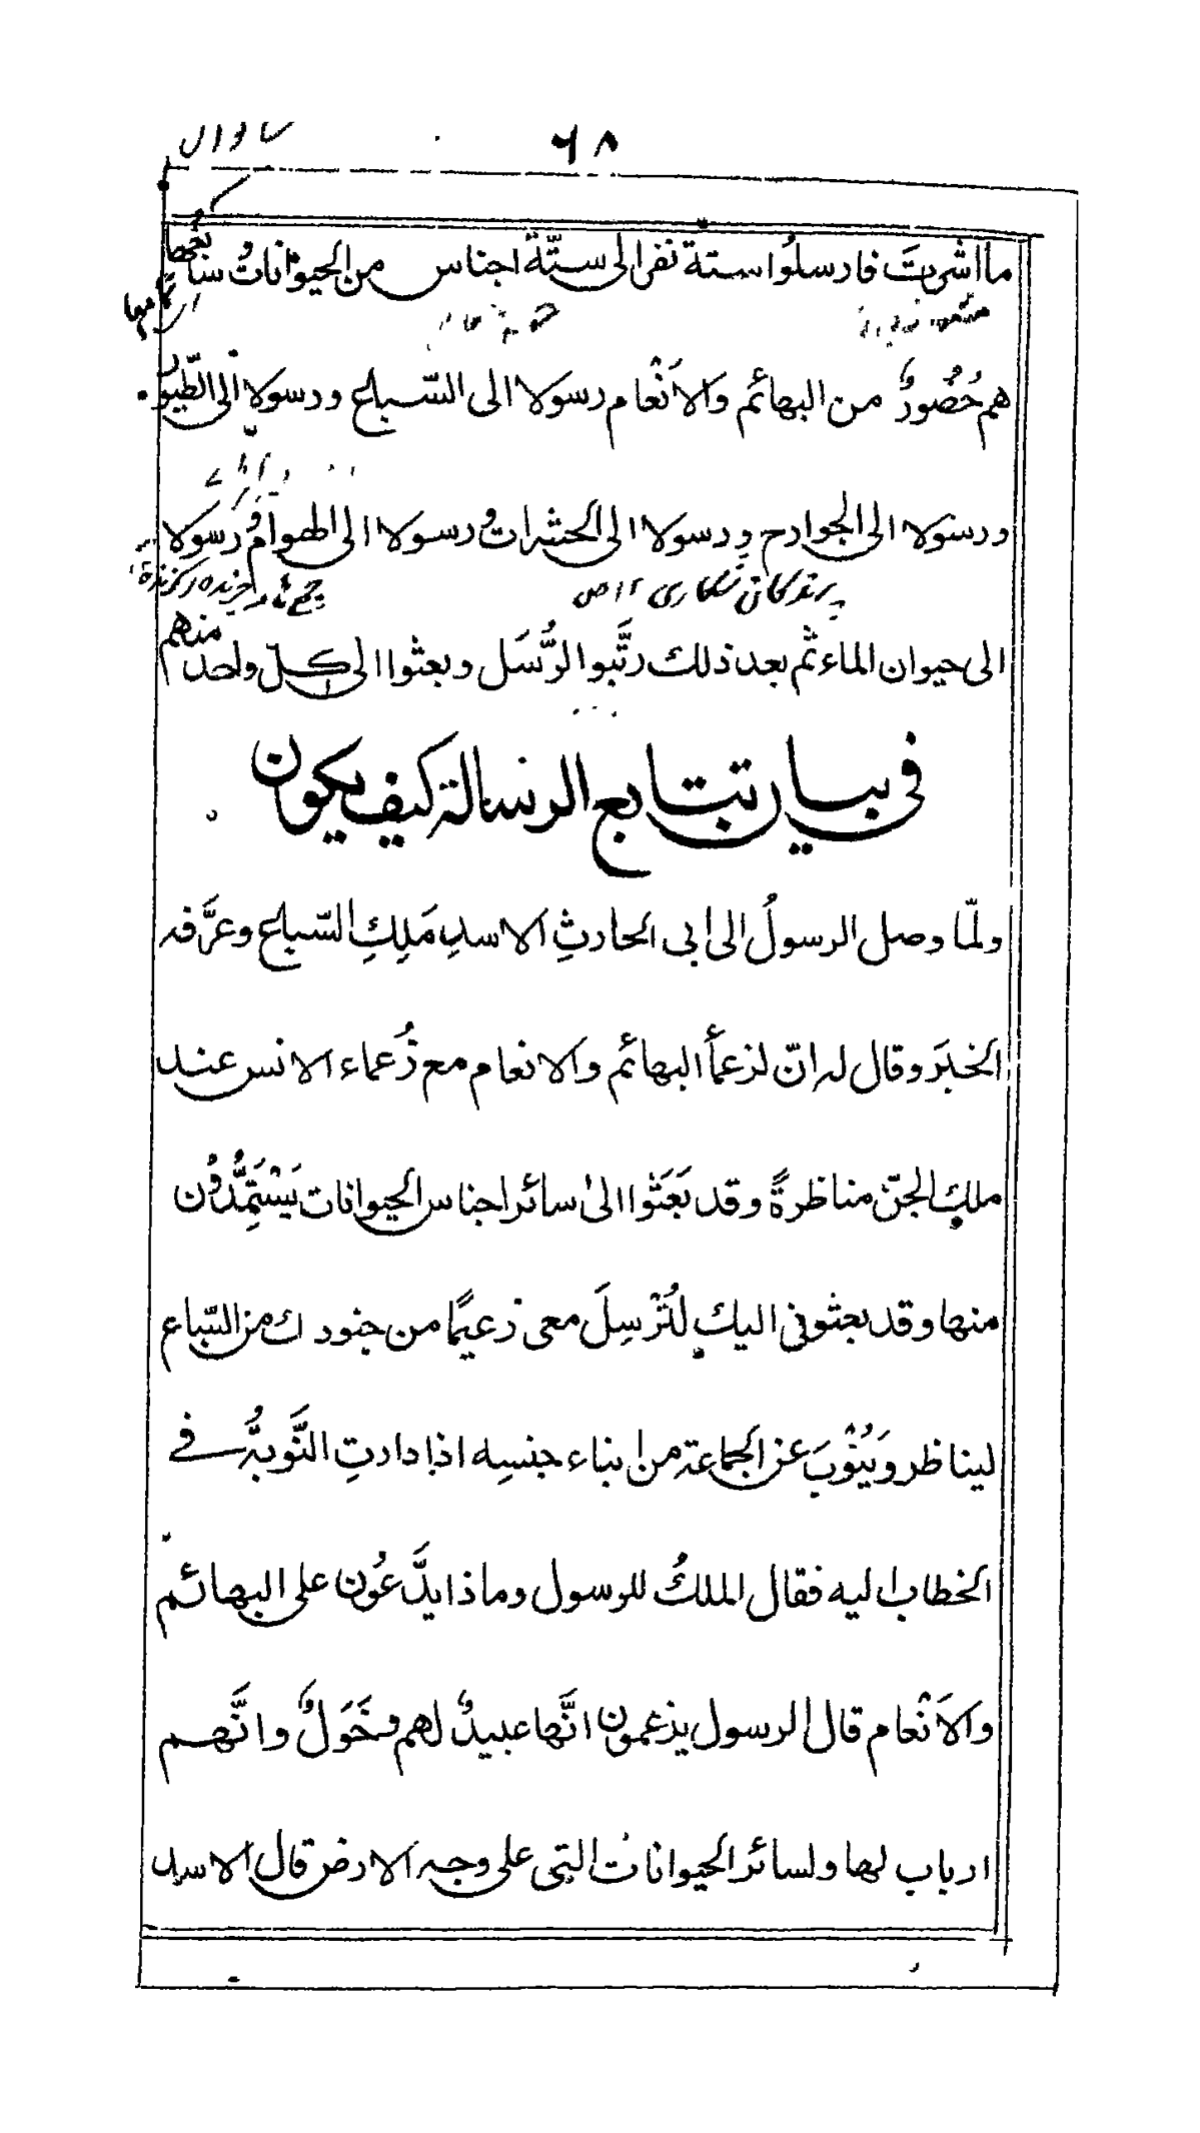 ۶۸
ما اشرتَ فارسلُوا ستة نفر الى ستّة اجناس من الحيوانات سابعها
هم حُضُورٌ من البهائم والاَنْعام رسولا الى السّباع ورسولا الى الطّيور
ورسولا الى الجوارح ورسولا الى الحشرات ورسولا الى الهوام ورسولا
پرندگان شکاری ۱۲ ص
الى حيوان الماء ثم بعد ذلك رتَّبوا الرُّسَل وبعثوا الى كلّ واحد منهم
فى بيان تتابع الرسالة كيف يكون
ولمّا وصل الرسولُ الى ابى الحارثِ الاسدِ مَلِكِ السّباع وعرَّفه
الخبَر وقال له انّ لزعمأ البهائم والانعام مع زُعماء الانس عند
ملكِ الجنّ مناظرةً وقد بَعَثوا الىٰ سائر اجناس الحيوانات يَسْتَمِدُّوْن
منها وقد بعثونى اليك لتُرْسِلَ معى زعيمًا من جنودك من السّباع
ليناظر ويَنُوْبَ عن الجماعة من ابناء جنسِه اذا دارتِ النَّوبةُ فے
الخطاب اليه فقال الملكُ للرسول وماذا يدَّعُون على البهائم
والاَنْعام قال الرسول يزعمون انَّها عبيدٌ لهم وخَوَلٌ وانَّهم
ارباب لها ولسائر الحيوانات التى على وجه الارض قال الاسد